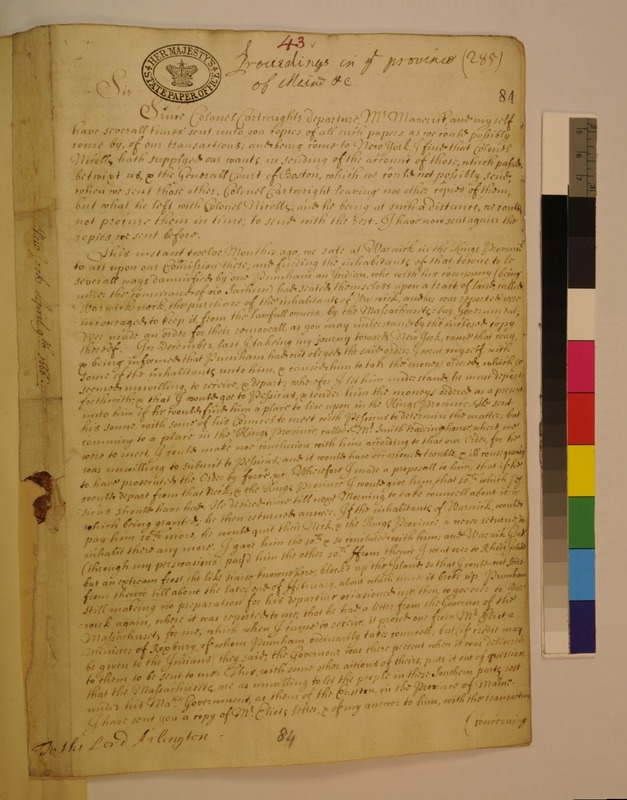 43.
Proceedings in yᵉ province (285)
of Main &c
HER MAJESTY'S STATE PAPER OFFICE
84
Sir
Since Colonel Cartwrights departure, Mʳ Maverick and my self
have severall times sent unto you copies of all such papers as we could possibly
come by, of our transactions; and being come to New York I find that Colonel
Nicolls hath supplyed our wants in sending of the account of those, which passed
betwixt us, & the Generall Court of Boston, which we could not possibly send
when we sent those other, Colonel Cartwright leaving noe other copies of them
but what he left with Colonel Nicolls, and he being at such a distance, we could
not procure them in time, to send with the rest. I have now sent again the
copies we sent before.
This instant twelve Months agoe, we sate at Warwick in the Kings Province
to act upon our Comission there, and finding the inhabitants of that towne to be
severall ways damnified by one Pumham an Indian, who with his company (being
under the command of no Sachim) had seated themselves upon a tract of land, called
Warwick neck, the purchase of the inhabitants of Warwick, and as was reported were
incouraged to keep it from the lawfull owners, by the Massachusets bay Government;
We made an order for their removeall, as you may understand by the inclosed copy
thereof. In december last I takeing my journy towards New York, came that way,
& being informed that Pumham had not obeyed the said order, I went my self, with
some of the inhabitants unto him, & caused him to take the moneys ordered, which he
seemed unwilling, to receive, & depart; wherefore I let him understand he must depart
forthwith, & that I would goe to Pessicus, & tender him the moneys ordered as a present
unto him if he would find him a place to live upon in the Kings Province. He sent
his sonne, with some of his Councel to meet with Pessicus to determin the matter; but
comming to a place in the Kings Province, called Mʳ Smith tradeing house, where we
were to meet, I could make noe conclusion with him according to that our Order, for he
was unwilling to submit to Pessicus, and it would have occasioned trouble, & ill consequence
to have prosecuted the Order by force &c. Wherefore I made a proposall to him, that if he
would depart from that Neck, & the Kings Province I would give him that 10ˡⁱ which Pes-
sicus should have had. He desired time till next Morning to take councell about it;
which being granted, he then returned answer: If the inhabitants of Warwick, would
pay him 10ˡⁱ more, he would quit their Neck, & the Kings Province & never returne, to
inhabit there any more. I gave him the 10ˡⁱ & so concluded with him; and Warwick Gent
(through my perswasions) pay'd him the other 10ˡⁱ. From thence I went over to Rhode Island
but an extream frost the like scarce knowne here, blockt up the Island, so that I could not stirr
from thence till about the later end of February, about which time it broke up. Pumham
still making no preparation for his departure occasioned me then to goe over to War-
wick again, where it was reported to me, that he had a letter from the Governor of the
Massachusets, for me, which when I came to receive, it proved one from Mʳ Eliot a
Minister of Roxbury, of whom Pumham ordinarily takes councell, but (if credit may
be given to the Indians) they said, the Governour was there present when it was delivered
to them to be sent to me. This, with some other account of theirs, puts it out of question
that the Massachusets, are as unwilling to let the people in these Southern parts rest
under his Maᵗⁱᵉˢ Government, as them of the Easton, in the Province of Maine.
I have sent you a copy of Mʳ Eliots letter, & of my answer to him, with the transactions
(concerning
To the Lord Arlington
84